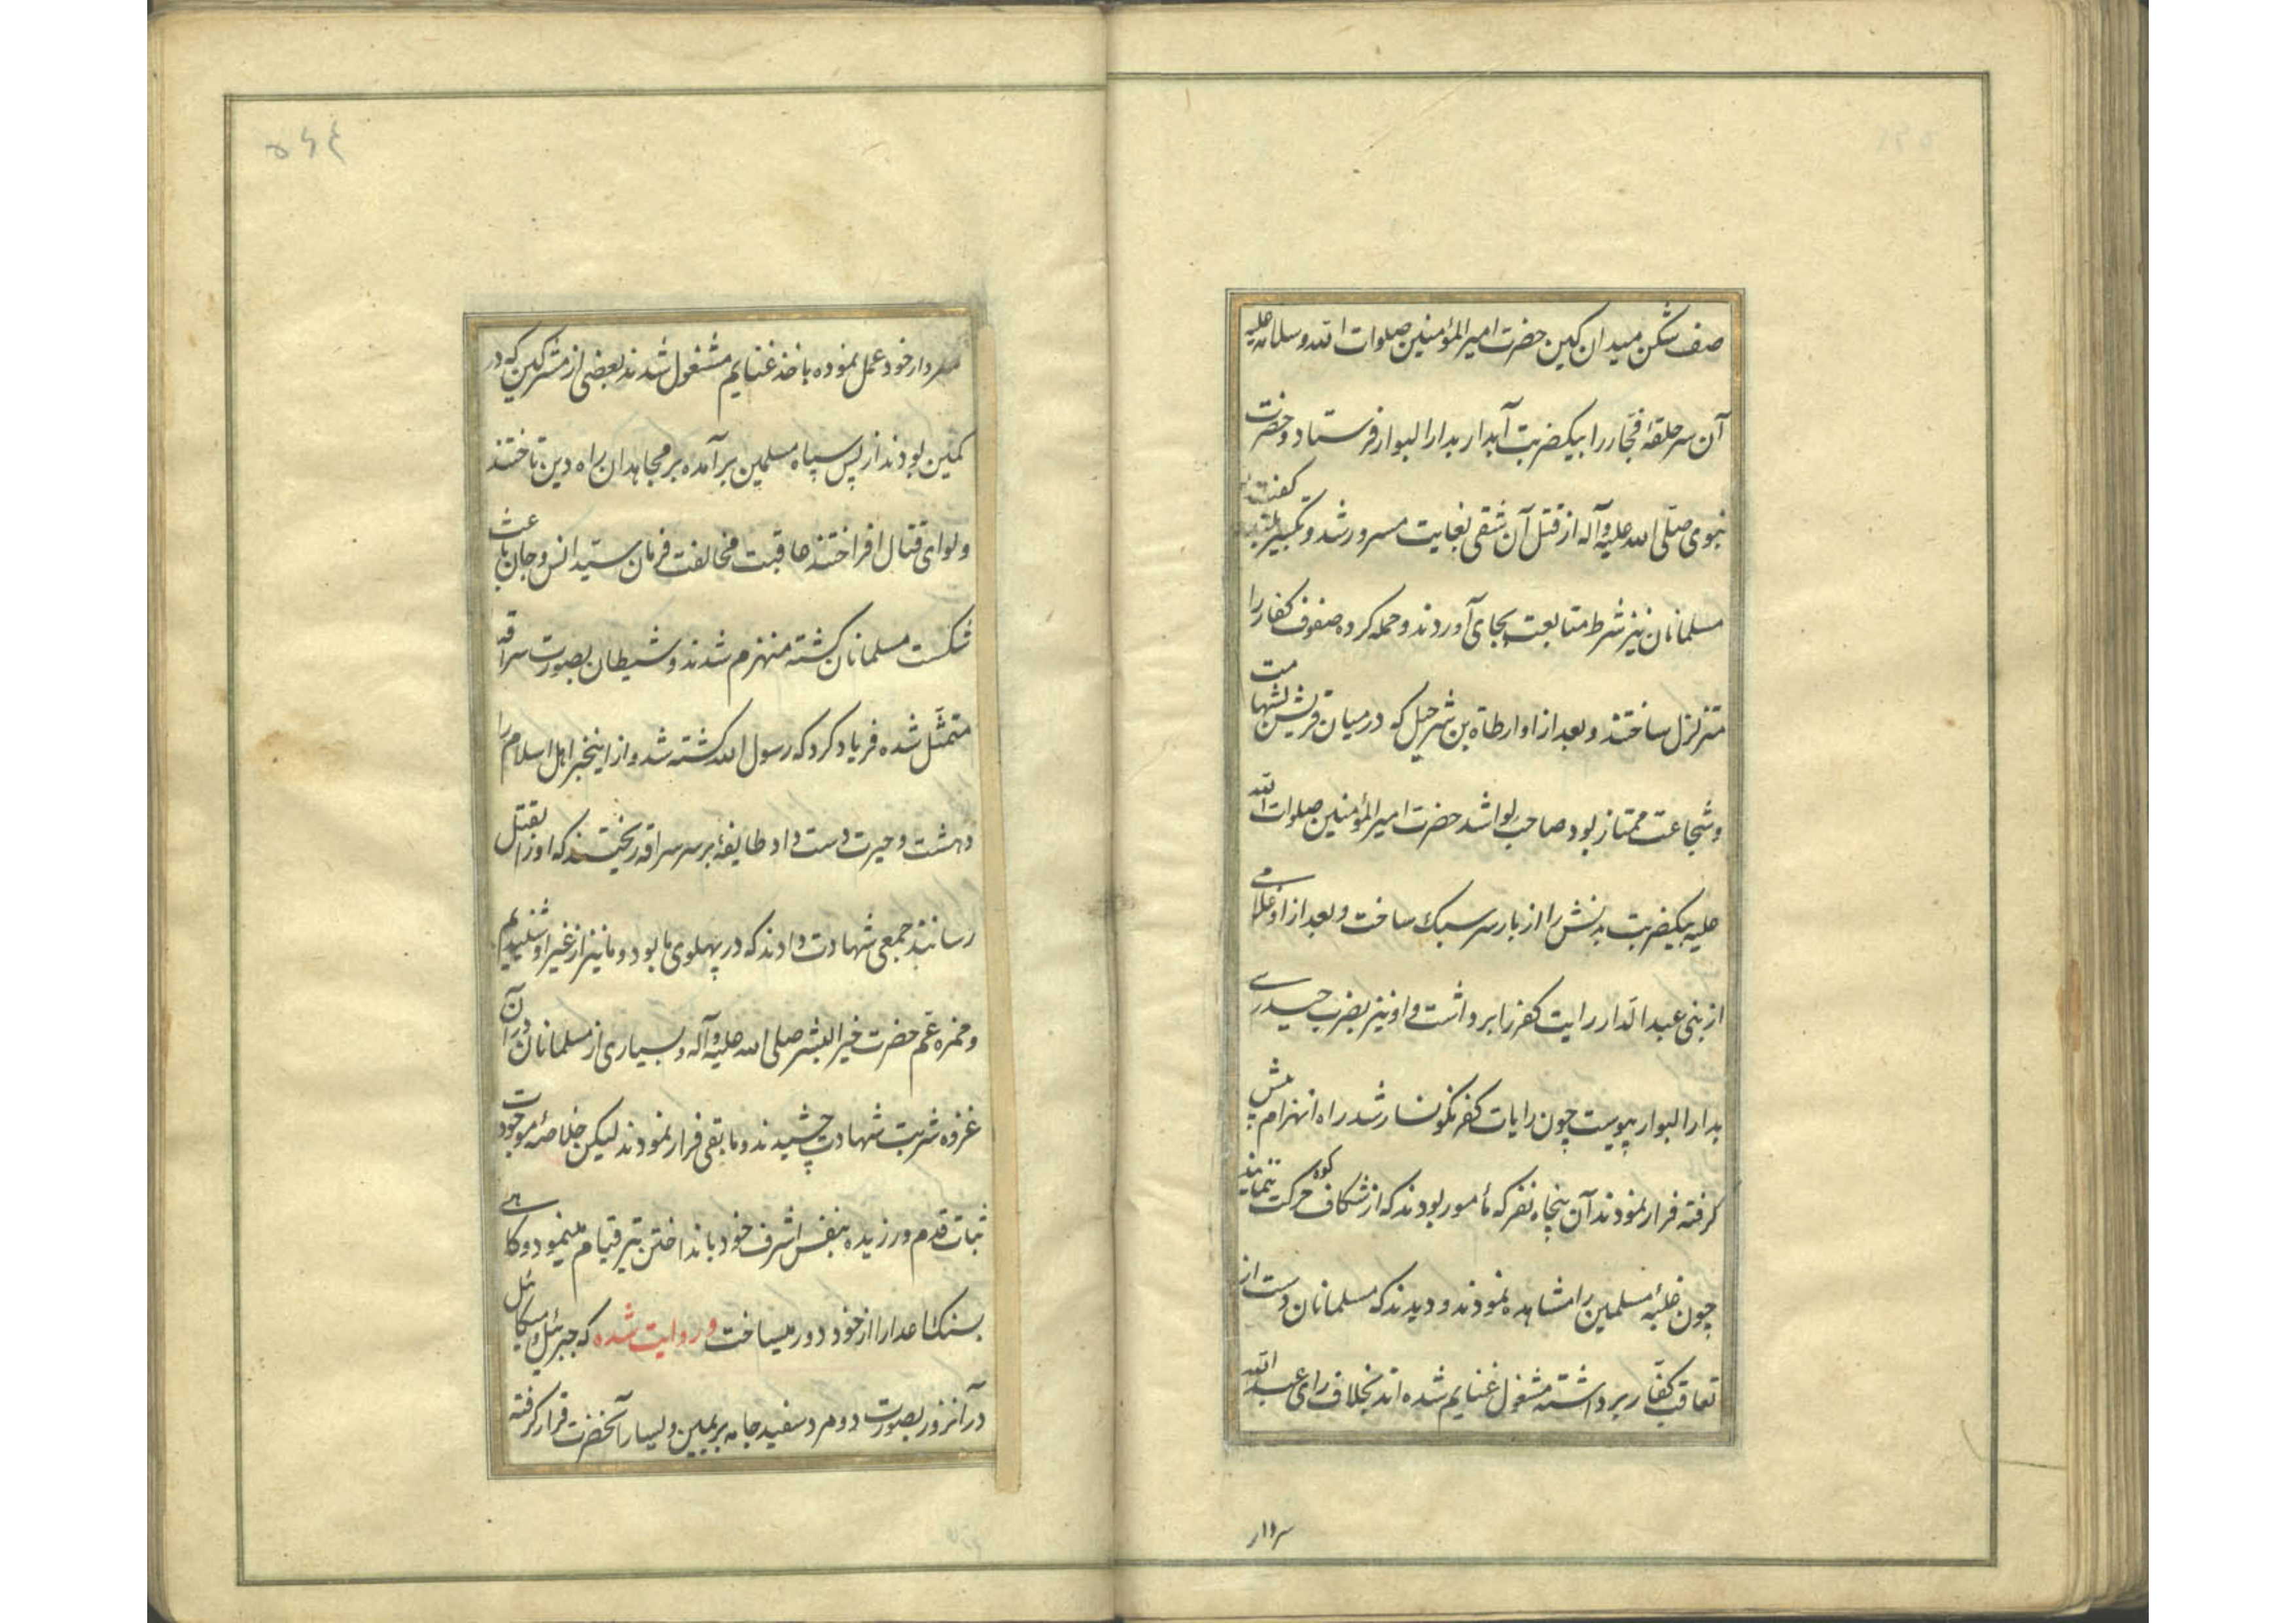 صف شکن میدان کین حضرت امیرالمؤمنین صلوات الله و سلامه علیه
آن سر حلقهٔ فجار را بیکضربت آبدار بدارالبوار فرستاد و حضرت
نبوی صلّی الله علیه وآله از قتل آن شقی بغایت مسرور شد و تکبیر گفت
مسلمانان نیز شرط متابعت بجای آوردند و حمله کرده صفوف کفار را
متزلزل ساختند و بعد از او ارطاة بن شرحبیل که در میان قریش بشهامت
و شجاعت ممتاز بود صاحب لوا شد حضرت امیرالمؤمنین صلوات الله
علیه بیکضربت بدنش را از بار سر سبک ساخت و بعد از او غلامی
از بنی عبدالدار رایت کفر را برداشت و او نیز بضرب حیدری
بدارالبوار پیوست چون رایات کفر نکونسار شد راه انهزام پیش
کرفته فرار نمودند آن پنجاه نفر که مأمور بودند که از شکاف کوه حرکت ننمایند
چون غلبهٔ مسلمین را مشاهده نمودند و دیدند که مسلمانان دست از
تعاقب کفّار برداشته مشغول غنایم شده اند بخلاف رای عبدالله
سردار
۵۶۴
سردار خود عمل نموده باخذ غنایم مشغول شدند بعضی از مشرکین که در
کمین بودند از پس سپاه مسلمین برآمده بر مجاهدان راه دین تاختند
و لوای قتال افراختند عاقبت مخالفت فرمان سیّد انس و جان باعث
شکست مسلمانان کشته منهزم شدند و شیطان بصورت سراقه
متمثّل شده فریاد کرد که رسول الله کشته شد و از اینخبر اهل اسلام را
دهشت و حیرت دست داد طایفهٔ بر سر سراقه ریختند که او را بقتل
رسانند جمعی شهادت دادند که در پهلوی ما بود و ما نیز از غیر او شنیدیم
و حمزه عمّ حضرت خیرالبشر صلی الله علیه وآله و بسیاری از مسلمانان در آن
غزوه شربت شهادت چشیدند و مابقی فرار نمودند لیکن خلاصهٔ موجودات
ثبات قدم ورزیده بنفس اشرف خود بانداختن تیر قیام مینمود و کاهی
بسنک اعدا را از خود دور میساخت و روایت شده که جبرئیل و میکائیل
در آنروز بصورت دو مرد سفید جامه بر یمین و یسار آنحضرت قرار کرفته